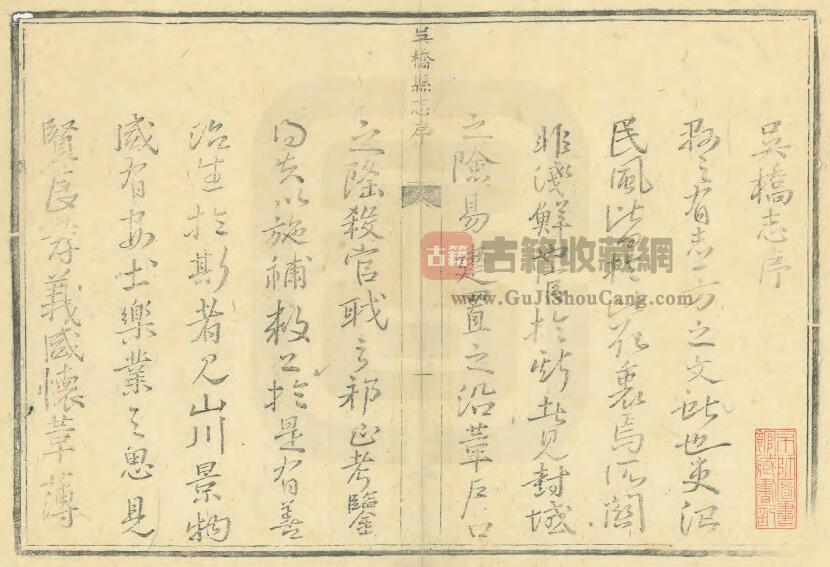 吳橋志序
縣之有志一方之文獻也吏治
民風皆於此取裏焉所關
非淺鮮也官於斯者見封域
之險易建置之沿革戶口
吳橋縣志序
一
之隆殺官職之邪正考鑒
得失以施補救之於是有善
治生於斯者見山川景物
咸有安土樂業之思見
賢良孝義咸懷革薄
古籍
古籍收藏網
www.GuJiShouCang.com